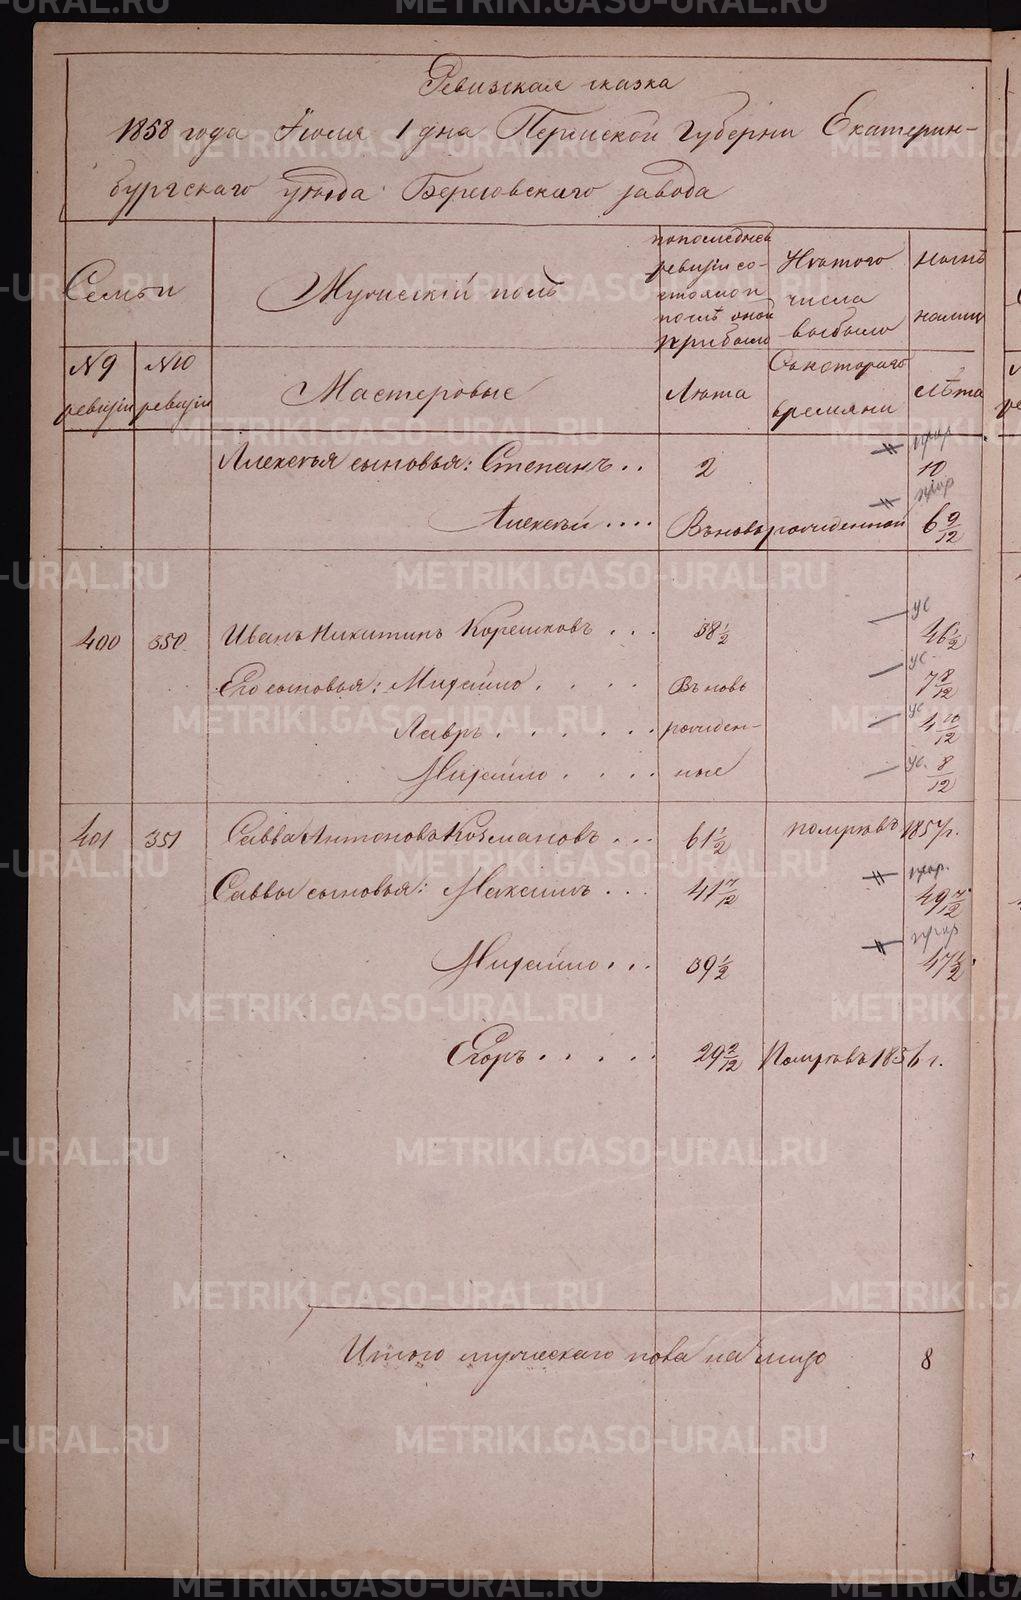 Ревизская сказка
1858 года Iюня 1 дня Пермской Губернiи Екатерин-
бургскаго уѣзда Березовскаго завода
Семьи
Мужескiй полъ
по последней ревизiи со-стояло и послѣ оной прибыло
Изтого числа выбыло
Нынѣ налицо
№ 9 ревизiи
№ 10 ревизiи
Мастеровые
Лѣта
Съкотораго времяни
Лѣта
Алексѣя сыновья: Степанъ .. 2 10
Алексѣй .... Въновьрожденной 6 9/12
400 350 Иванъ Никитинъ Корешковъ ... 38 1/2 ус 46 1/2
Его сыновья: Михайло .... Въновь ус 7 8/12
Лавръ ...... рожден- ус 4 10/12
Михайло .... ные ус. 8/12
401 351 Савва Антоновъ Козмановъ ... 61 1/2 померъвъ 1857 г.
Саввы сыновья: Максимъ ... 41 7/12 49 7/12
Михайло ... 39 1/2 47 1/2
Егоръ ..... 29 2/12 Померъвъ 1856 г.
Итого мужескаго пола на лицо 8
METRIKI.GASO-URAL.RU